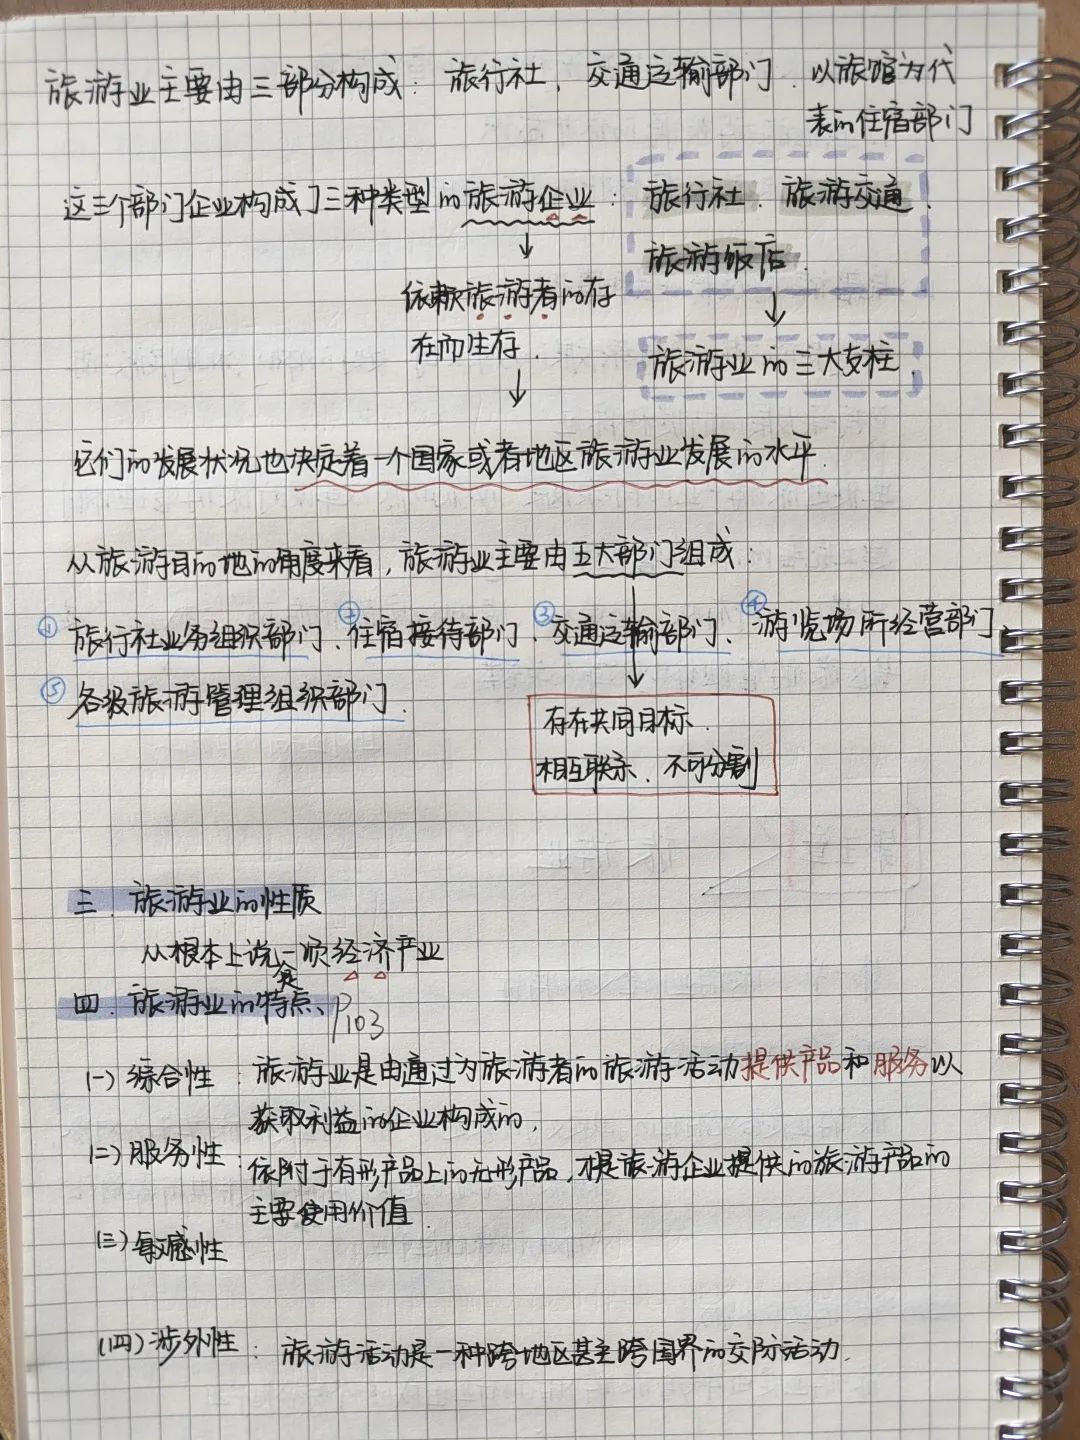 旅游业主要由三部分构成：旅行社、交通运输部门、以旅馆为代
表的住宿部门
这三个部门企业构成了三种类型的旅游企业：旅行社、旅游交通、
旅游饭店.
依赖旅游者的存
在而生存.
旅游业的三大支柱.
它们的发展状况也决定着一个国家或者地区旅游业发展的水平.
从旅游目的地的角度来看,旅游业主要由五大部门组成:
①旅行社业务组织部门、②住宿接待部门、③交通运输部门、④游览场所经营部门、
⑤各级旅游管理组织部门.
存在共同目标.
相互联系、不可分割
三.旅游业的性质
从根本上说一项经济产业
是
四.旅游业的特点、P103
(一)综合性：旅游业是由通过为旅游者的旅游活动提供产品和服务以
获取利益的企业构成的,
(二)服务性：依附于有形产品上的无形产品,才是旅游企业提供的旅游产品的
主要使用价值.
(三)敏感性
(四)涉外性：旅游活动是一种跨地区甚至跨国界的交际活动.